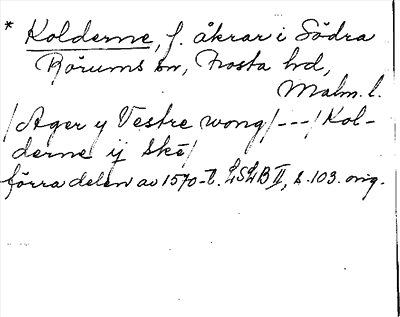 * Kolderne, f. åkrar i Södra
Rörums sn, Frosta hd,
Malm. l.
/Ager y Vestre wong/---/Kol-
derne ij skē/
förra delen av 1570-t. LSLB II, s. 103. orig.